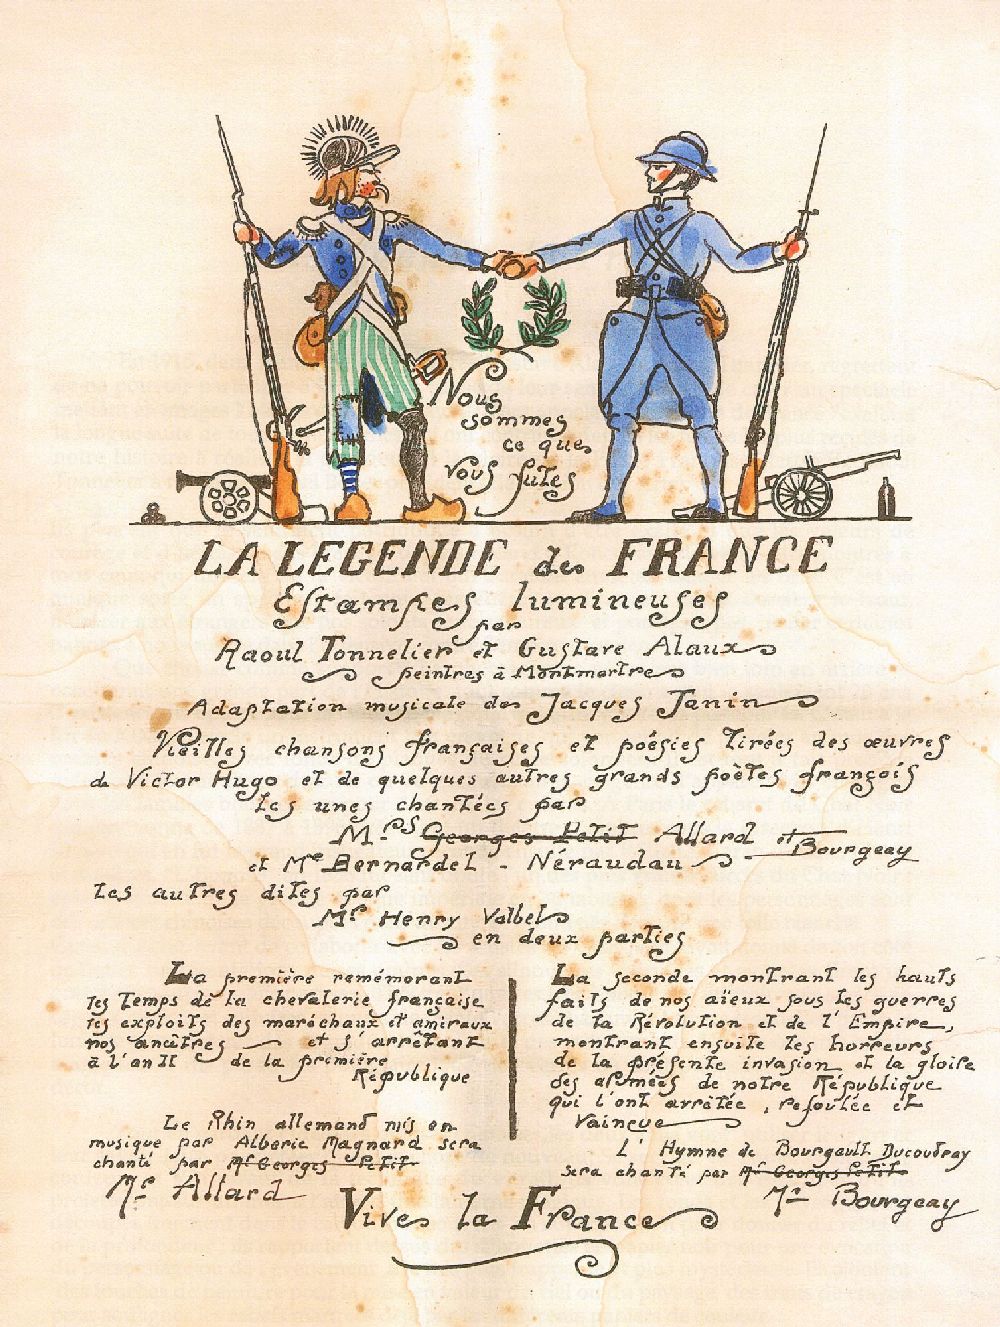 Nous
sommes
ce que
vous fûtes
LA LEGENDE de FRANCE
Estampes lumineuses
par
Raoul Tonnelier et Gustave Alaux
peintres à Montmartre
Adaptation musicale de Jacques Janin
Vieilles chansons françaises et poésies tirées des œuvres
de Victor Hugo et de quelques autres grands poètes françois
les unes chantées par
Mrs Georges Petit Allard et Bourgeay
et Me Bernardel - Néraudau
les autres dites par
Mr Henry Valbel
en deux parties
La première remémorant
les temps de la chevalerie française
les exploits des maréchaux et amiraux
nos ancêtres et s'arrêtant
à l'an II de la première
République
Le Rhin allemand mis en
musique par Alberic Magnard sera
chanté par Mr Georges Petit
Mr Allard
La seconde montrant les hauts
faits de nos aïeux sous les guerres
de la Révolution et de l'Empire,
montrant ensuite les horreurs
de la présente invasion et la gloire
des armées de notre République
qui l'ont arrêtée, refoulée et
vaincue
L'Hymne de Bourgault Ducoudray
sera chanté par Mr Georges Petit
Mr Bourgeay
Vive la France